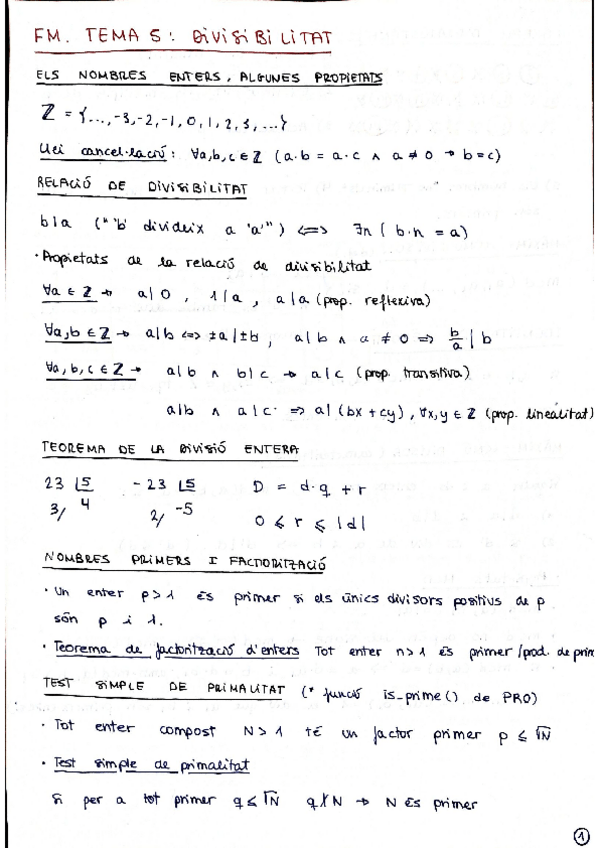 FM. TEMA 5: DIVISIBILITAT
ELS NOMBRES ENTERS, ALGUNES PROPIETATS
ℤ = {..., -3, -2, -1, 0, 1, 2, 3, ...}
Llei cancel·lació: ∀a,b,c ∈ ℤ (a·b = a·c ∧ a ≠ 0 → b = c)
RELACIÓ DE DIVISIBILITAT
b|a ("'b' divideix a 'a'") ⟺ ∃n (b·n = a)
· Propietats de la relació de divisibilitat
∀a ∈ ℤ → a|0, 1|a, a|a (prop. reflexiva)
∀a,b ∈ ℤ → a|b ⟺ ±a|±b, a|b ∧ a ≠ 0 ⟹ b/a | b
∀a,b,c ∈ ℤ → a|b ∧ b|c → a|c (prop. transitiva)
a|b ∧ a|c ⟹ a|(bx + cy), ∀x,y ∈ ℤ (prop. linealitat)
TEOREMA DE LA DIVISIÓ ENTERA
23 |5 -23 |5 D = d·q + r
3/ 4 2/ -5 0 ⩽ r ⩽ |d|
NOMBRES PRIMERS I FACTORITZACIÓ
· Un enter p > 1 és primer si els únics divisors positius de p
són p i 1.
· Teorema de factorització d'enters Tot enter n > 1 és primer/prod. de prim
TEST SIMPLE DE PRIMALITAT (* funció is_prime() de PRO)
· Tot enter compost N > 1 té un factor primer p ⩽ √N
· Test simple de primalitat
Si per a tot primer q ⩽ √N q∤N → N és primer
1